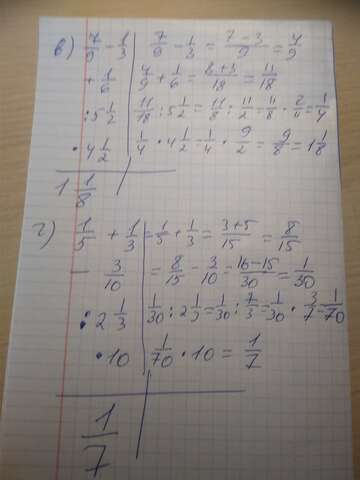 в) 7/9 - 1/3 | 7/9 - 1/3 = (7-3)/9 = 4/9
+ 1/6 | 4/9 + 1/6 = (8+3)/18 = 11/18
: 5 1/2 | 11/18 : 5 1/2 = 11/8 : 11/2 = 11/8 · 2/11 = 1/4
· 4 1/2 | 1/4 · 4 1/2 = 1/4 · 9/2 = 9/8 = 1 1/8
1 1/8
г) 1/5 + 1/3 | = 1/5 + 1/3 = (3+5)/15 = 8/15
- 3/10 | = 8/15 - 3/10 = (16-15)/30 = 1/30
: 2 1/3 | 1/30 : 2 1/3 = 1/30 : 7/3 = 1/30 · 3/7 = 1/70
· 10 | 1/70 · 10 = 1/7
1/7